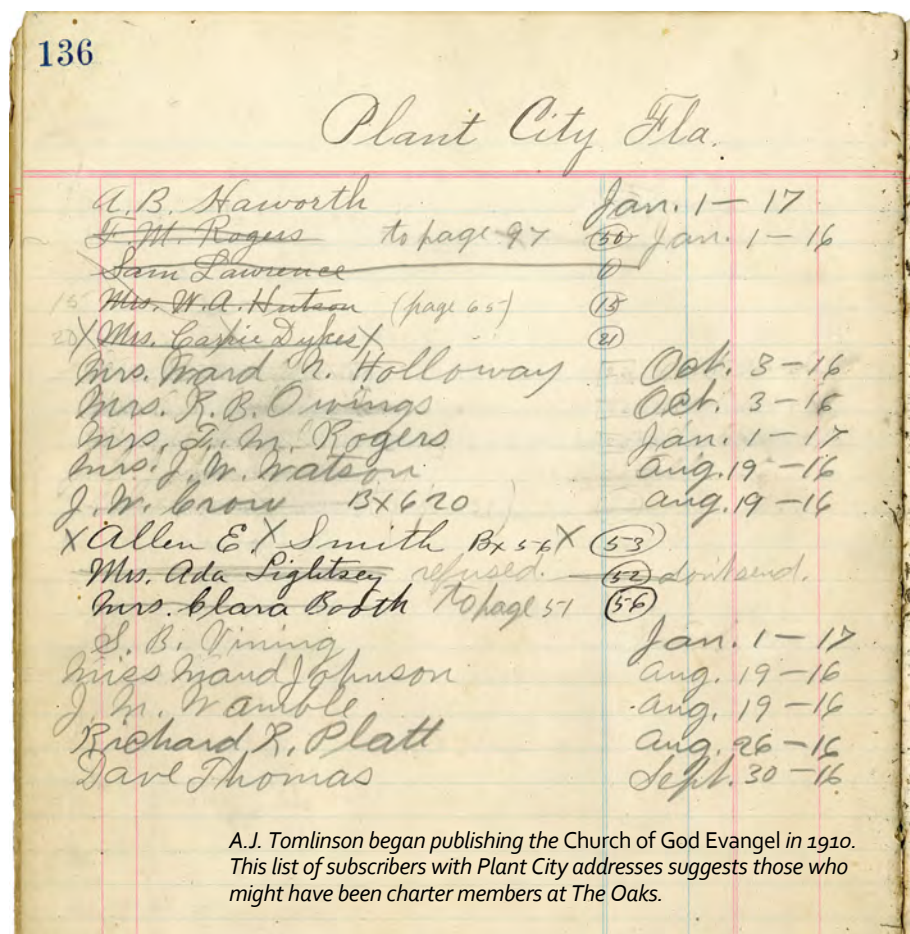 136
Plant City Fla.
A.B. Haworth Jan. 1 – 17
F.M. Rogers to page 97 50 Jan. 1 – 16
Sam Lawrence 0
15 Mrs. W.A. Hutson (page 65) 15
20 X Mrs. Carrie Dykes X 21
Mrs. Ward N. Holloway Oct. 3 – 16
Mrs. R.B. Owings Oct. 3 – 16
Mrs. F.M. Rogers Jan. 1 – 17
Mrs. J.W. Watson Aug. 19 – 16
J.W. Crow Bx 620 Aug. 19 – 16
X Allen E. X Smith Bx 56 X 53
Mrs. Ada Lightsey refused. 52 don't send.
Mrs. Clara Booth To page 51 56
S.B. Vining Jan. 1 – 17
Miss Maud Johnson Aug. 19 – 16
J.M. Wamble Aug. 19 – 16
Richard R. Platt Aug. 26 – 16
Dave Thomas Sept. 30 – 16
A.J. Tomlinson began publishing the Church of God Evangel in 1910.
This list of subscribers with Plant City addresses suggests those who
might have been charter members at The Oaks.